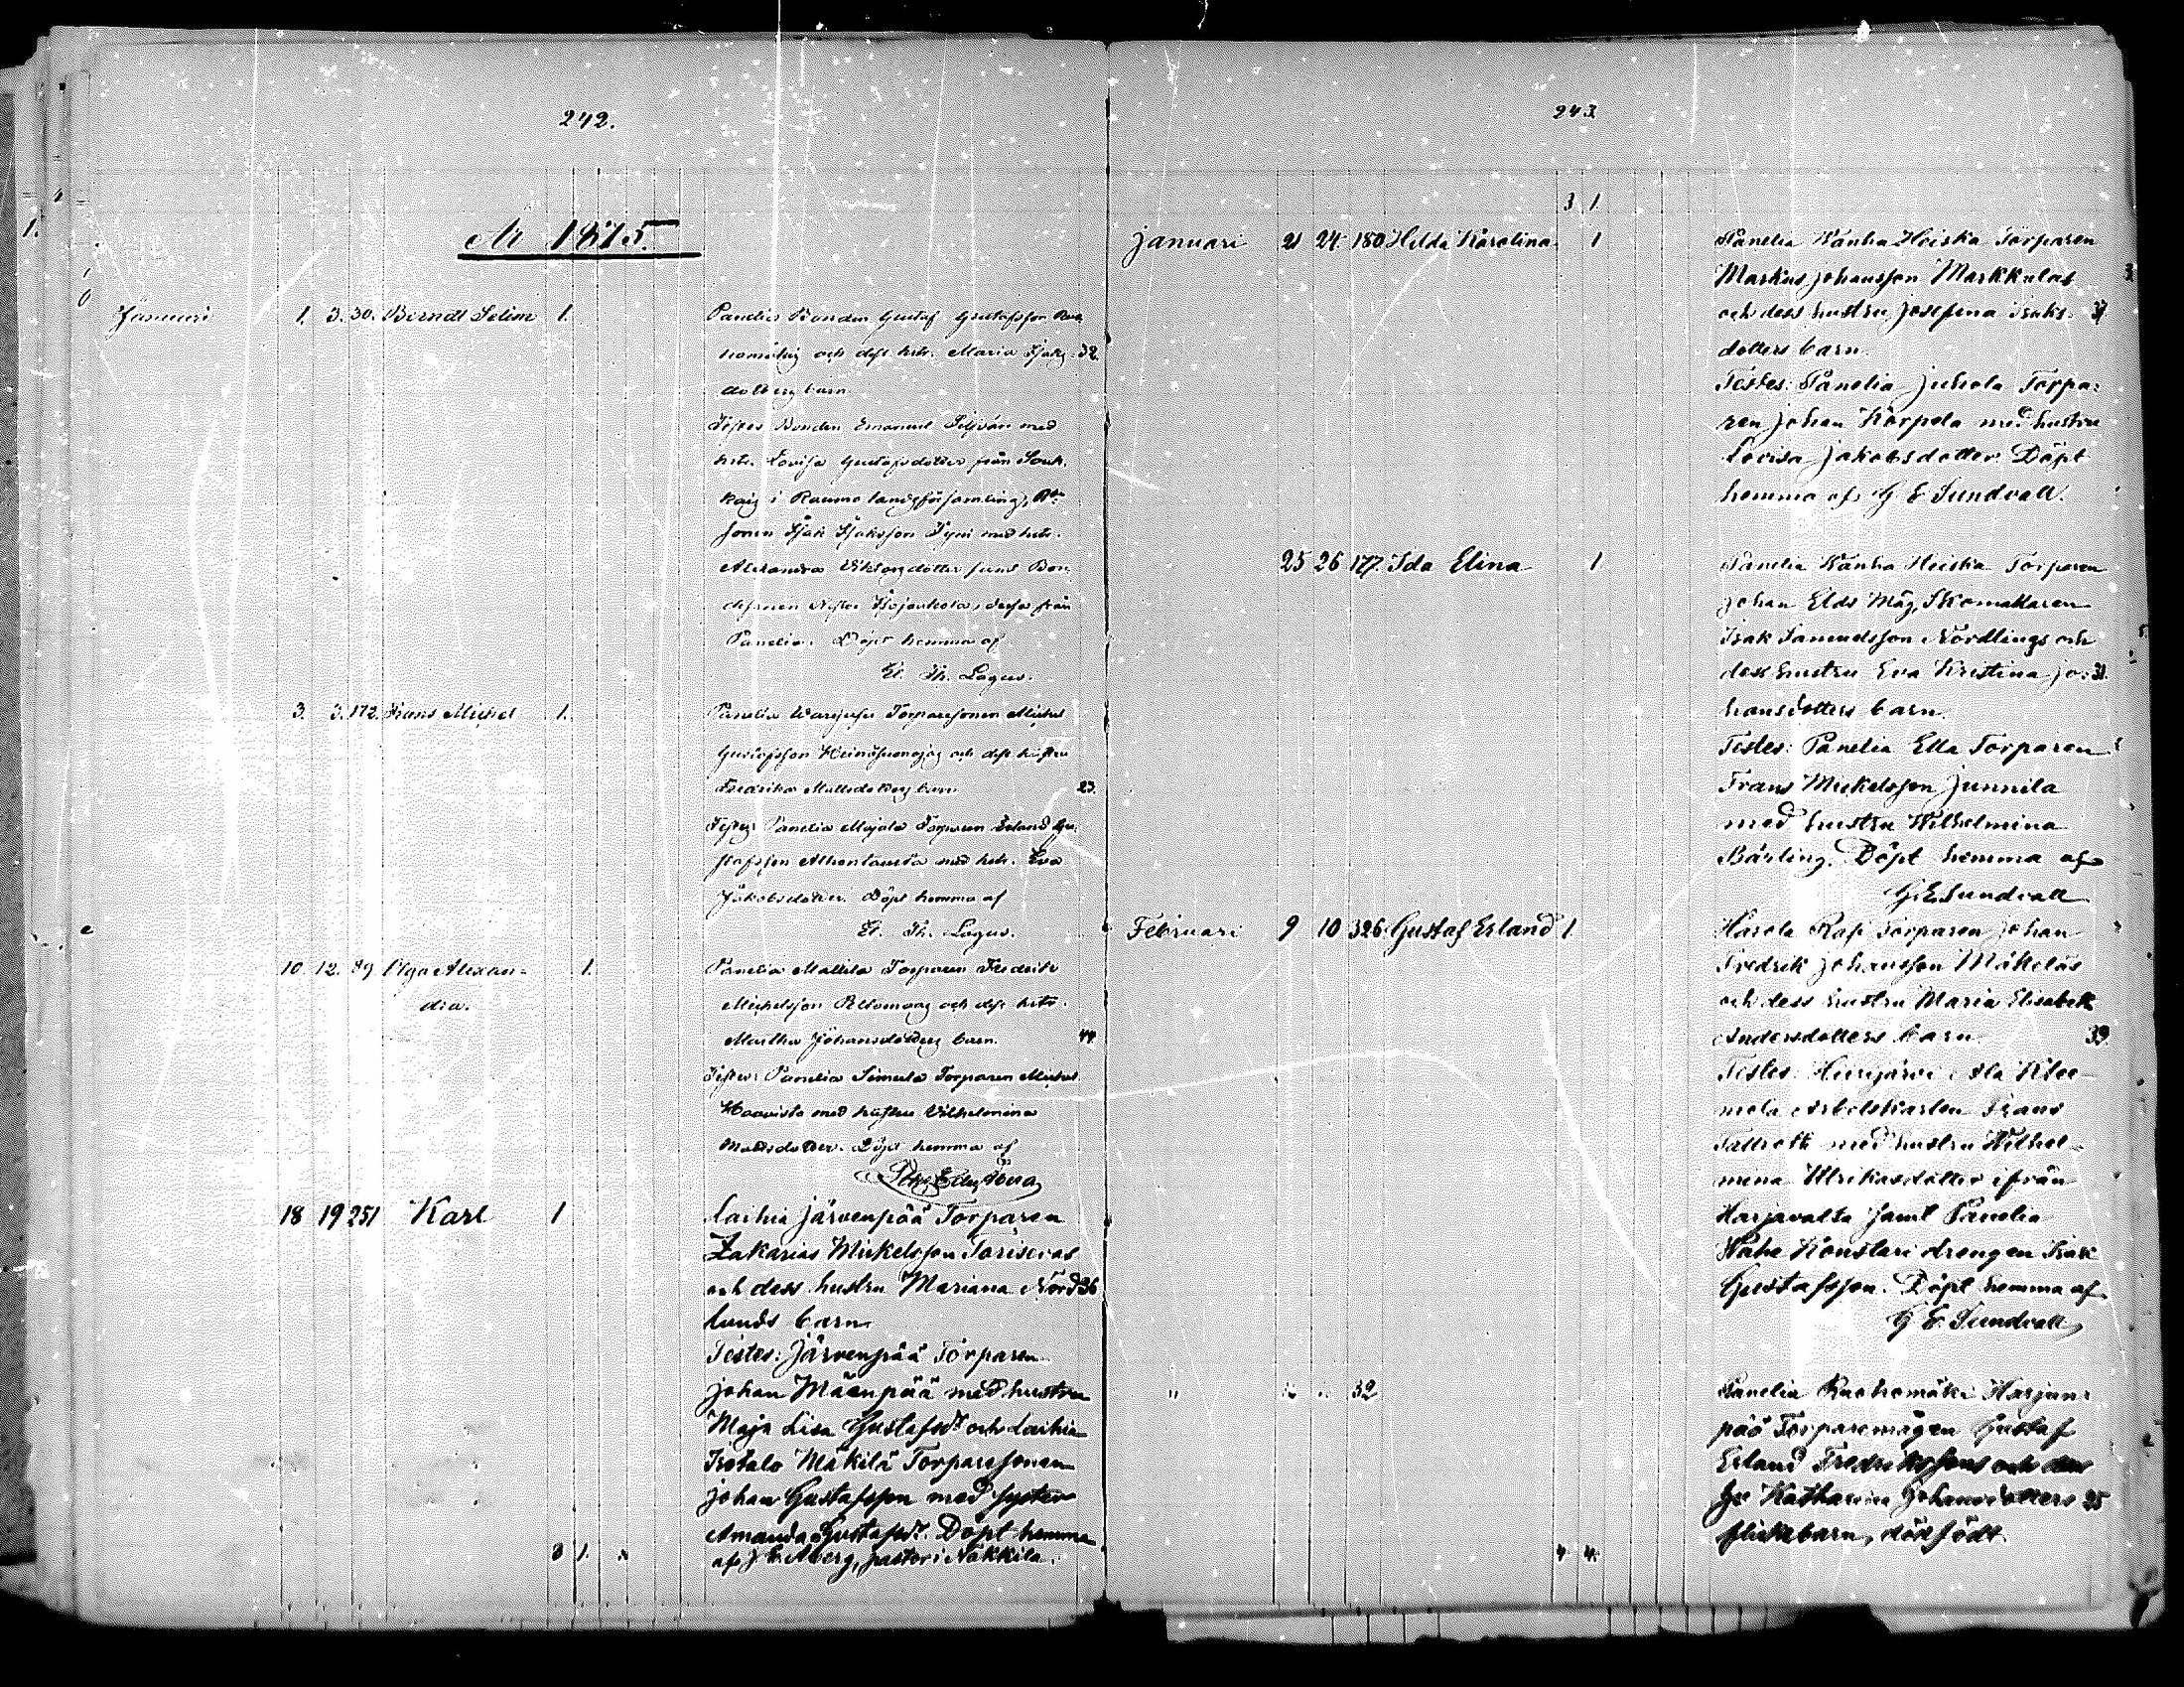 242.
År 1875.
Januari 1. 3. 30. Berndt Selim 1. Panelia Bonden Gustaf Gustafsson
och dess hstr. Maria Isaks 32.
dotters barn
Testes Bonden Emanuel med
hstr. Lovisa Gustafsdotter från
i Raumo landsförsamling,
sonen Isak Isaksson med hstr.
Alexandra Viktorsdotter samt Bon
från
Panelia. Döpt hemma af
Th. Lagus.
3. 3. 172. Frans Michel 1. Panelia Torparesonen Michel
Gustafsson och dess hustru
Fredrika Mattsdotters barn 23.
Testes: Panelia Majala Torparen Erland Gu
stafsson med hstr. Eva
Jakobsdotter. Döpt hemma af
Th. Lagus.
10. 12. 89 Olga Alexan= 1. Panelia Mattila Torparen Fredrik
dra. Michelsson och dess hstr.
Martha Johansdotters barn. 44.
Testes: Panelia Simula Torparen Michel
Haavisto med hustru Vilhelmina
Mattsdotter. Döpt hemma af
18 19 251 Karl 1 Laihia Järvenpää Torparen
Zakarias Mickelsson Torisevas
och dess hustru Mariana Nord 36
lunds barn
Testes: Järvenpää Torparen
Johan Mäenpää med hustru
Maja Lisa Gustafsdr och Laihia
Isotalo Mäkilä Torparesonen
Johan Gustafsson med syster
Amanda Gustafsdr. Döpt hemma
af J. E. Åberg, pastor i Nakkila.
3 1.
243
3 1.
Januari 21 24 180 Hilda Karolina 1 Panelia Wanha Heiska Torparen
Markus Johansson Markkulas
och dess hustru Josefina Isaks- 37
dotters barn.
Testes: Panelia Juhola Torpa=
ren Johan Korpela med hustru
Lovisa Jakobsdotter. Döpt
hemma af G E Sundvall.
25 26 177. Ida Elina 1 Panelia Wanha Heiska Torparen
Johan Elds Måg, Skomakaren
Isak Samuelsson Nordlings och
dess hustru Eva Kristina Jo= 31.
hansdotters barn.
Testes: Panelia Ella Torparen
Frans Mickelsson Junnila
med hustru Wilhelmina
Bärling. Döpt hemma af
G. E. Sundvall
Februari 9 10 326 Gustaf Erland 1. Harola Rafi Torparen Johan
Fredrik Johansson Mäkeläs
och dess hustru Maria Elisabet
Andersdotters barn 39.
Testes: Ala Klee-
mola Arbetskarlen Frans
Tallroth med hustru Wilhel-
mina Ulrikasdotter ifrån
Harjavalta samt Panelia
Wähe Konstari drengen Isak
Gustafsson. Döpt hemma af
G E Sundvall
" " " 32 Panelia Ruohomäki Harjan=
pää Torparemågen Gustaf
Erland Fredrikssons och dess
hu Katharina Johansdotters 25
flickebarn, dödfödt.
4 4.